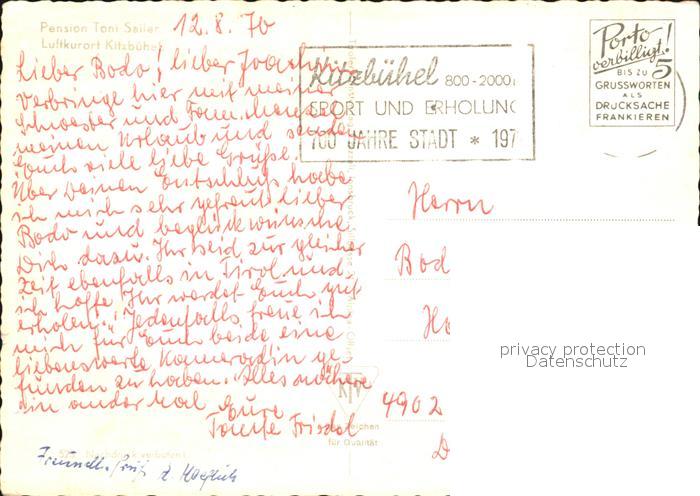 Pension Toni Sailer
Luftkurort Kitzbühel
12.8.70
Lieber Bodo! lieber Joachim
Verbringe hier mit meiner
Schwester und Fam.
meinen Urlaub und sende
Euch viele liebe Grüße.
Über Deinen Entschluß habe
ich mich sehr gefreut lieber
Bodo und beglückwünsche
Dich dazu. Ihr seid zur gleichen
Zeit ebenfalls in Tirol und
ich hoffe Ihr werdet Euch gut
erholen. Jedenfalls freue ich
mich für Euch beide eine
liebenswerte Kameradin ge-
funden zu haben. Alles nähere
ein ander Mal
Eure
Tante Friedel
Kitzbühel 800-2000
SPORT UND ERHOLUNG
700 JAHRE STADT * 197
Porto
verbilligt!
BIS ZU 5
GRUSSWORTEN
ALS
DRUCKSACHE
FRANKIEREN
Herrn
Bod
Ho
4902
privacy protection
Datenschutz
für Qualität